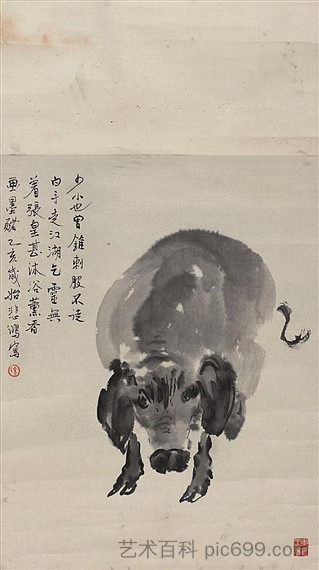 少小也曾錐刺股不徒
白手走江湖乞靈無
着張皇甚沐浴薰香
畫墨豬乙亥歲始悲鴻寫
艺术百科 pic699.com